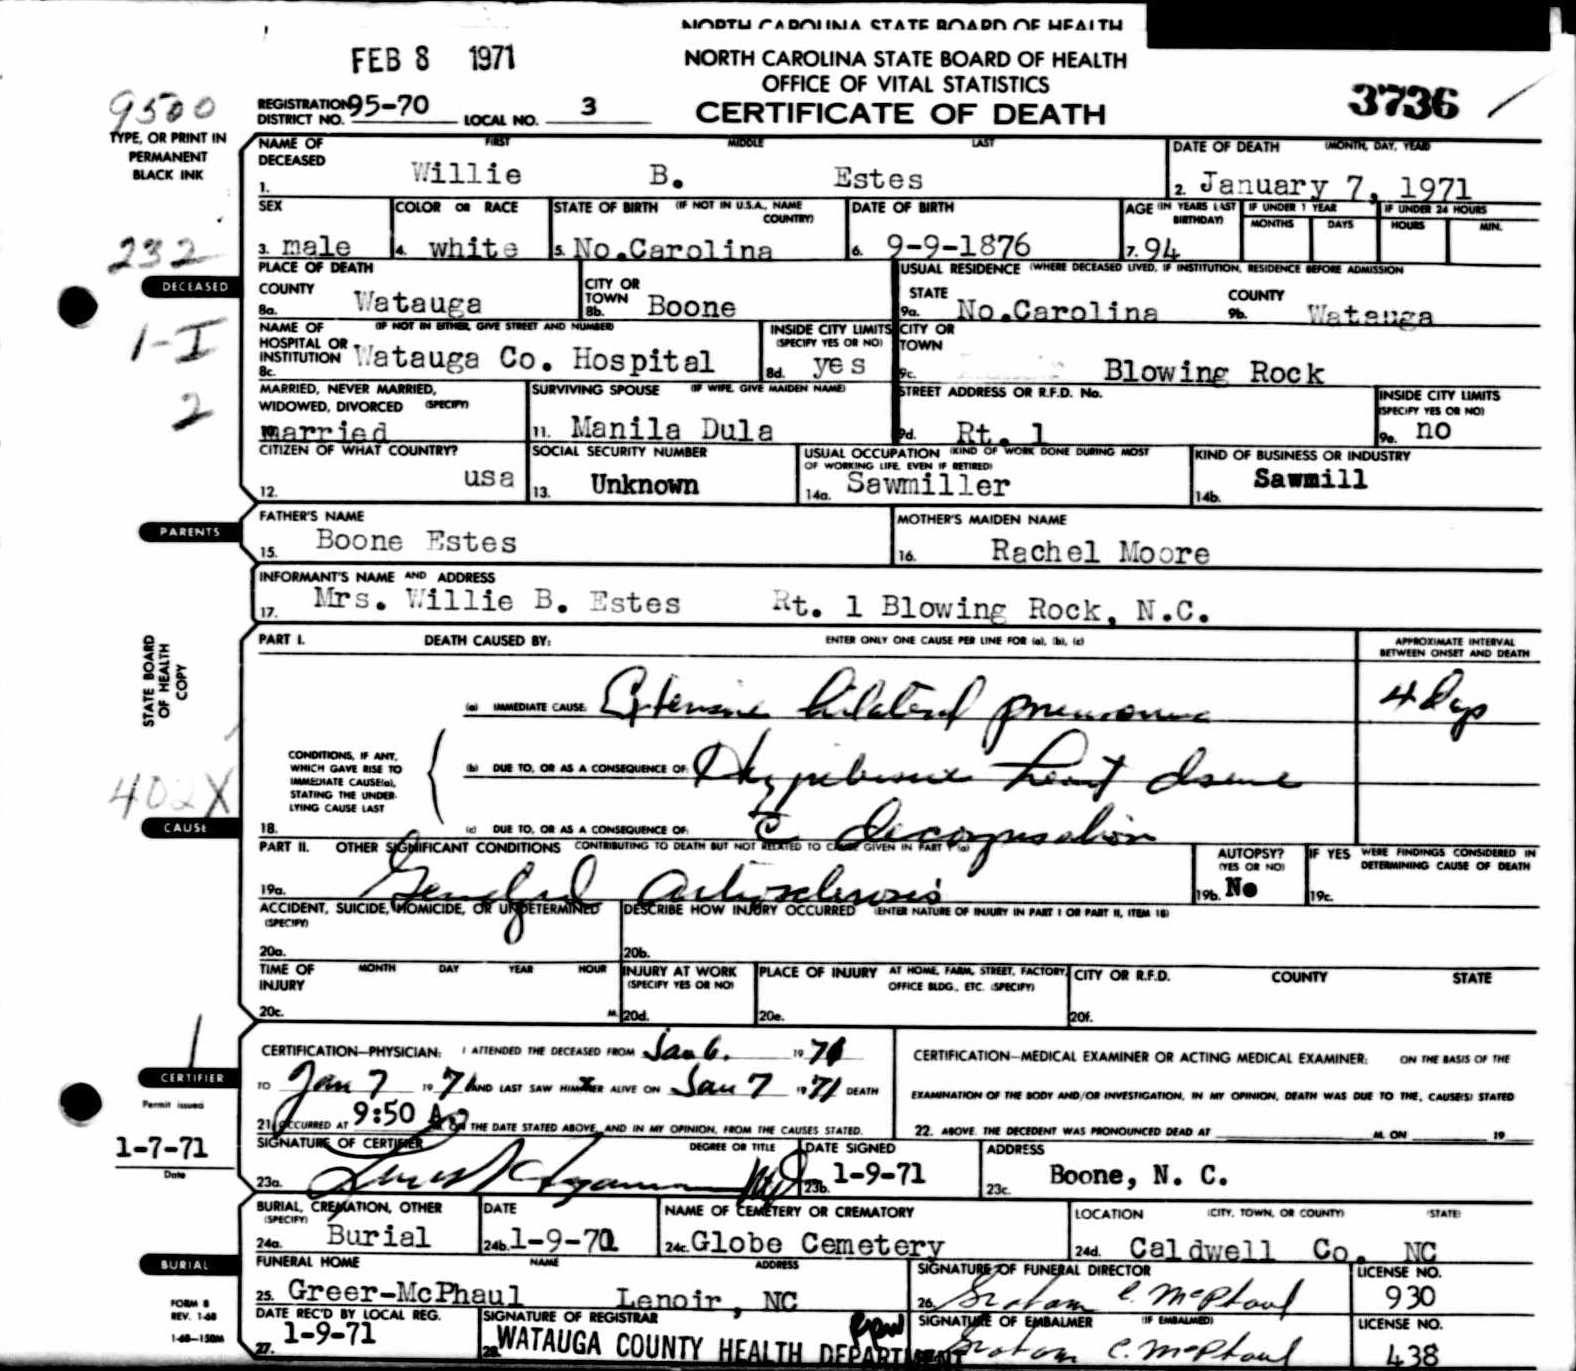 NORTH CAROLINA STATE BOARD OF HEALTH
FEB 8 1971
NORTH CAROLINA STATE BOARD OF HEALTH
OFFICE OF VITAL STATISTICS
CERTIFICATE OF DEATH
3736
9500
REGISTRATION DISTRICT NO. 95-70 LOCAL NO. 3
TYPE, OR PRINT IN PERMANENT BLACK INK
NAME OF DECEASED FIRST MIDDLE LAST DATE OF DEATH (MONTH, DAY, YEAR)
1. Willie B. Estes 2. January 7, 1971
SEX COLOR OR RACE STATE OF BIRTH (IF NOT IN U.S.A., NAME COUNTRY) DATE OF BIRTH AGE (IN YEARS LAST BIRTHDAY) IF UNDER 1 YEAR MONTHS DAYS IF UNDER 24 HOURS HOURS MIN.
3. male 4. white 5. No.Carolina 6. 9-9-1876 7. 94
232
DECEASED
PLACE OF DEATH USUAL RESIDENCE (WHERE DECEASED LIVED, IF INSTITUTION, RESIDENCE BEFORE ADMISSION
COUNTY 8a. Watauga CITY OR TOWN 8b. Boone STATE 9a. No.Carolina COUNTY 9b. Watauga
1-I
NAME OF HOSPITAL OR INSTITUTION (IF NOT IN EITHER, GIVE STREET AND NUMBER) 8c. Watauga Co. Hospital INSIDE CITY LIMITS (SPECIFY YES OR NO) 8d. yes CITY OR TOWN 9c. Blowing Rock
2
MARRIED, NEVER MARRIED, WIDOWED, DIVORCED (SPECIFY) married SURVIVING SPOUSE (IF WIFE, GIVE MAIDEN NAME) 11. Manila Dula STREET ADDRESS OR R.F.D. No. 9d. Rt. 1 INSIDE CITY LIMITS (SPECIFY YES OR NO) 9e. no
CITIZEN OF WHAT COUNTRY? 12. usa SOCIAL SECURITY NUMBER 13. Unknown USUAL OCCUPATION (KIND OF WORK DONE DURING MOST OF WORKING LIFE, EVEN IF RETIRED) 14a. Sawmiller KIND OF BUSINESS OR INDUSTRY 14b. Sawmill
PARENTS
FATHER'S NAME 15. Boone Estes MOTHER'S MAIDEN NAME 16. Rachel Moore
INFORMANT'S NAME AND ADDRESS
17. Mrs. Willie B. Estes Rt. 1 Blowing Rock, N.C.
STATE BOARD OF HEALTH COPY
PART I. DEATH CAUSED BY: ENTER ONLY ONE CAUSE PER LINE FOR (a), (b), (c) APPROXIMATE INTERVAL BETWEEN ONSET AND DEATH
(a) IMMEDIATE CAUSE: Extensive bilateral pneumonia 4 days
CONDITIONS, IF ANY, WHICH GAVE RISE TO IMMEDIATE CAUSE(a), STATING THE UNDERLYING CAUSE LAST
(b) DUE TO, OR AS A CONSEQUENCE OF: Hypertensive heart disease
402X
CAUSE
18. (c) DUE TO, OR AS A CONSEQUENCE OF: c̄ decompensation
PART II. OTHER SIGNIFICANT CONDITIONS CONTRIBUTING TO DEATH BUT NOT RELATED TO CAUSE GIVEN IN PART I (a)
19a. General arteriosclerosis AUTOPSY? (YES OR NO) 19b. No IF YES WERE FINDINGS CONSIDERED IN DETERMINING CAUSE OF DEATH 19c.
ACCIDENT, SUICIDE, HOMICIDE, OR UNDETERMINED (SPECIFY) DESCRIBE HOW INJURY OCCURRED (ENTER NATURE OF INJURY IN PART I OR PART II, ITEM 18)
20a. 20b.
TIME OF INJURY MONTH DAY YEAR HOUR INJURY AT WORK (SPECIFY YES OR NO) PLACE OF INJURY AT HOME, FARM, STREET, FACTORY, OFFICE BLDG., ETC. (SPECIFY) CITY OR R.F.D. COUNTY STATE
20c. M. 20d. 20e. 20f.
CERTIFIER
CERTIFICATION—PHYSICIAN: I ATTENDED THE DECEASED FROM Jan 6. 1971
TO Jan 7 1971 AND LAST SAW HIM/HER ALIVE ON Jan 7 1971 DEATH
21. OCCURRED AT 9:50 A M ON THE DATE STATED ABOVE, AND IN MY OPINION, FROM THE CAUSES STATED.
CERTIFICATION—MEDICAL EXAMINER OR ACTING MEDICAL EXAMINER: ON THE BASIS OF THE
EXAMINATION OF THE BODY AND/OR INVESTIGATION, IN MY OPINION, DEATH WAS DUE TO THE, CAUSE(S) STATED
22. ABOVE. THE DECEDENT WAS PRONOUNCED DEAD AT M. ON 19
Permit issued
1-7-71
Date
SIGNATURE OF CERTIFIER DEGREE OR TITLE DATE SIGNED ADDRESS
23a. MD 23b. 1-9-71 23c. Boone, N. C.
BURIAL, CREMATION, OTHER (SPECIFY) DATE NAME OF CEMETERY OR CREMATORY LOCATION (CITY, TOWN, OR COUNTY) (STATE)
24a. Burial 24b. 1-9-71 24c. Globe Cemetery 24d. Caldwell Co. NC
BURIAL
FUNERAL HOME NAME ADDRESS SIGNATURE OF FUNERAL DIRECTOR LICENSE NO.
25. Greer-McPhaul Lenoir, NC 26. Graham C. McPhaul 930
FORM 8
REV. 1-68
1-68-150M
DATE REC'D BY LOCAL REG. SIGNATURE OF REGISTRAR SIGNATURE OF EMBALMER (IF EMBALMED) LICENSE NO.
27. 1-9-71 28. WATAUGA COUNTY HEALTH DEPARTMENT Graham C. McPhaul 438